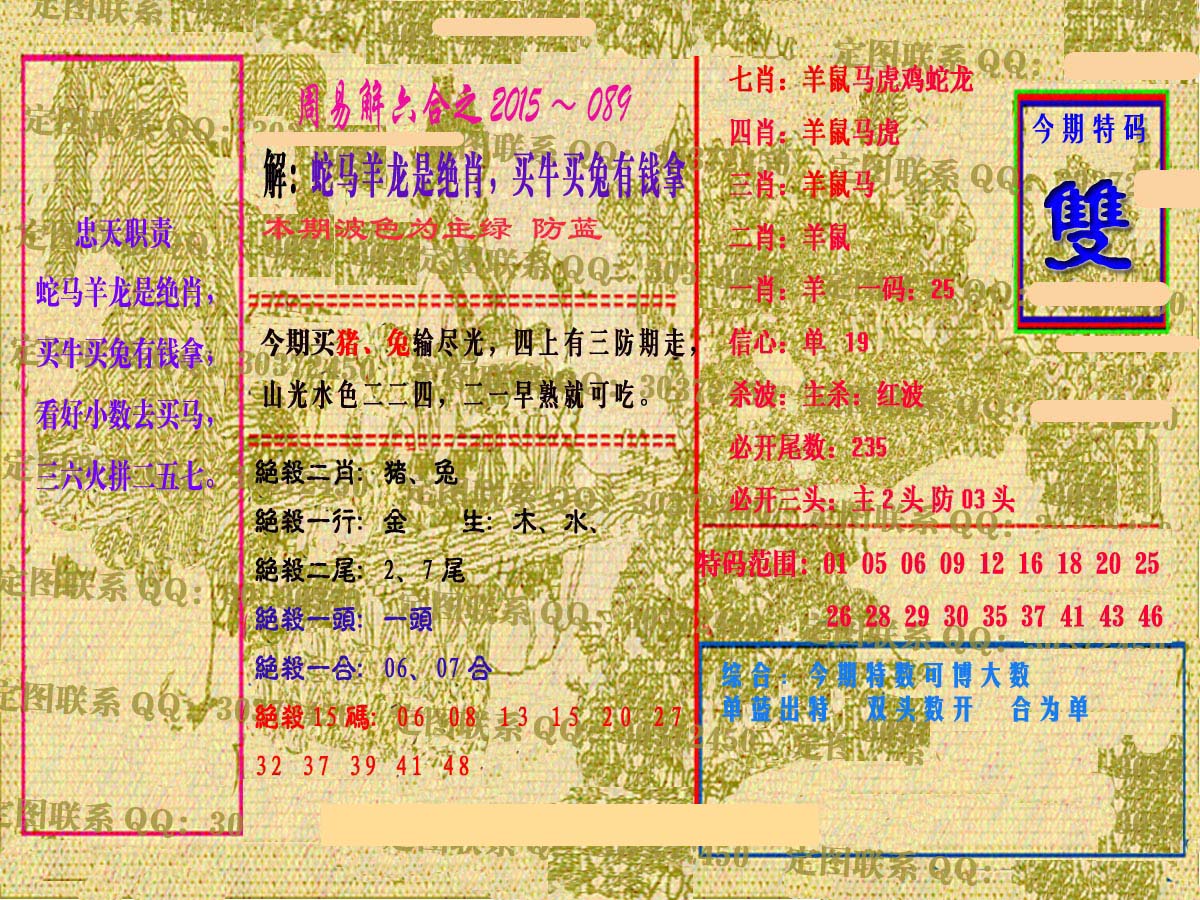 忠天职责
蛇马羊龙是绝肖，
买牛买兔有钱拿，
看好小数去买马，
三六火拼二五七。
周易解六合之 2015～089
解：蛇马羊龙是绝肖，买牛买兔有钱拿
本期波色为主绿 防蓝
今期买猪、兔输尽光，四上有三防期走，
山光水色二二四，二一早熟就可吃。
絕殺二肖：猪、兔
絕殺一行：金 生：木、水、
絕殺二尾：2、7尾
絕殺一頭：一頭
絕殺一合：06、07合
絕殺15碼：06 08 13 15 20 27
32 37 39 41 48
七肖：羊鼠马虎鸡蛇龙
四肖：羊鼠马虎
三肖：羊鼠马
二肖：羊鼠
一肖：羊 一码：25
信心：单 19
杀波：主杀：红波
必开尾数：235
必开三头：主2头防03头
今期特码
雙
特码范围：01 05 06 09 12 16 18 20 25
26 28 29 30 35 37 41 43 46
综合：今期特数可博大数
单蓝出特 双头数开 合为单
定图联系 QQ：